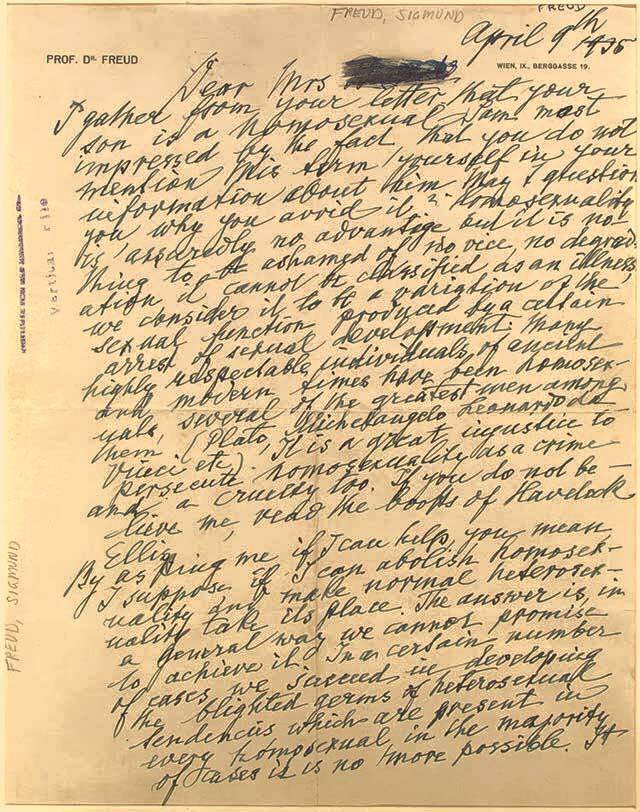 FREUD, SIGMUND
FREUD
April 9th 1935
PROF. DR. FREUD
WIEN, IX., BERGGASSE 19.
Dear Mrs
I gather from your letter that your
son is a homosexual. I am most
impressed by the fact that you do not
mention this term yourself in your
information about him. May I question
you why you avoid it? Homosexuality
is assuredly no advantage but it is no-
thing to be ashamed of, no vice, no degrad-
ation, it cannot be classified as an illness;
we consider it to be a variation of the
sexual function produced by a certain
arrest of sexual development. Many
highly respectable individuals of ancient
and modern times have been homosex-
uals, several of the greatest men among
them (Plato, Michelangelo, Leonardo da
Vinci etc). It is a great injustice to
persecute homosexuality as a crime
and a cruelty too. If you do not be-
lieve me, read the books of Havelock
Ellis.
By asking me if I can help, you mean
I suppose if I can abolish homosex-
uality and make normal heterosex-
uality take its place. The answer is, in
a general way we cannot promise
to achieve it. In a certain number
of cases we succeed in developing
the blighted germs of heterosexual
tendencies which are present in
every homosexual, in the majority
of cases it is no more possible. It
FREUD, SIGMUND